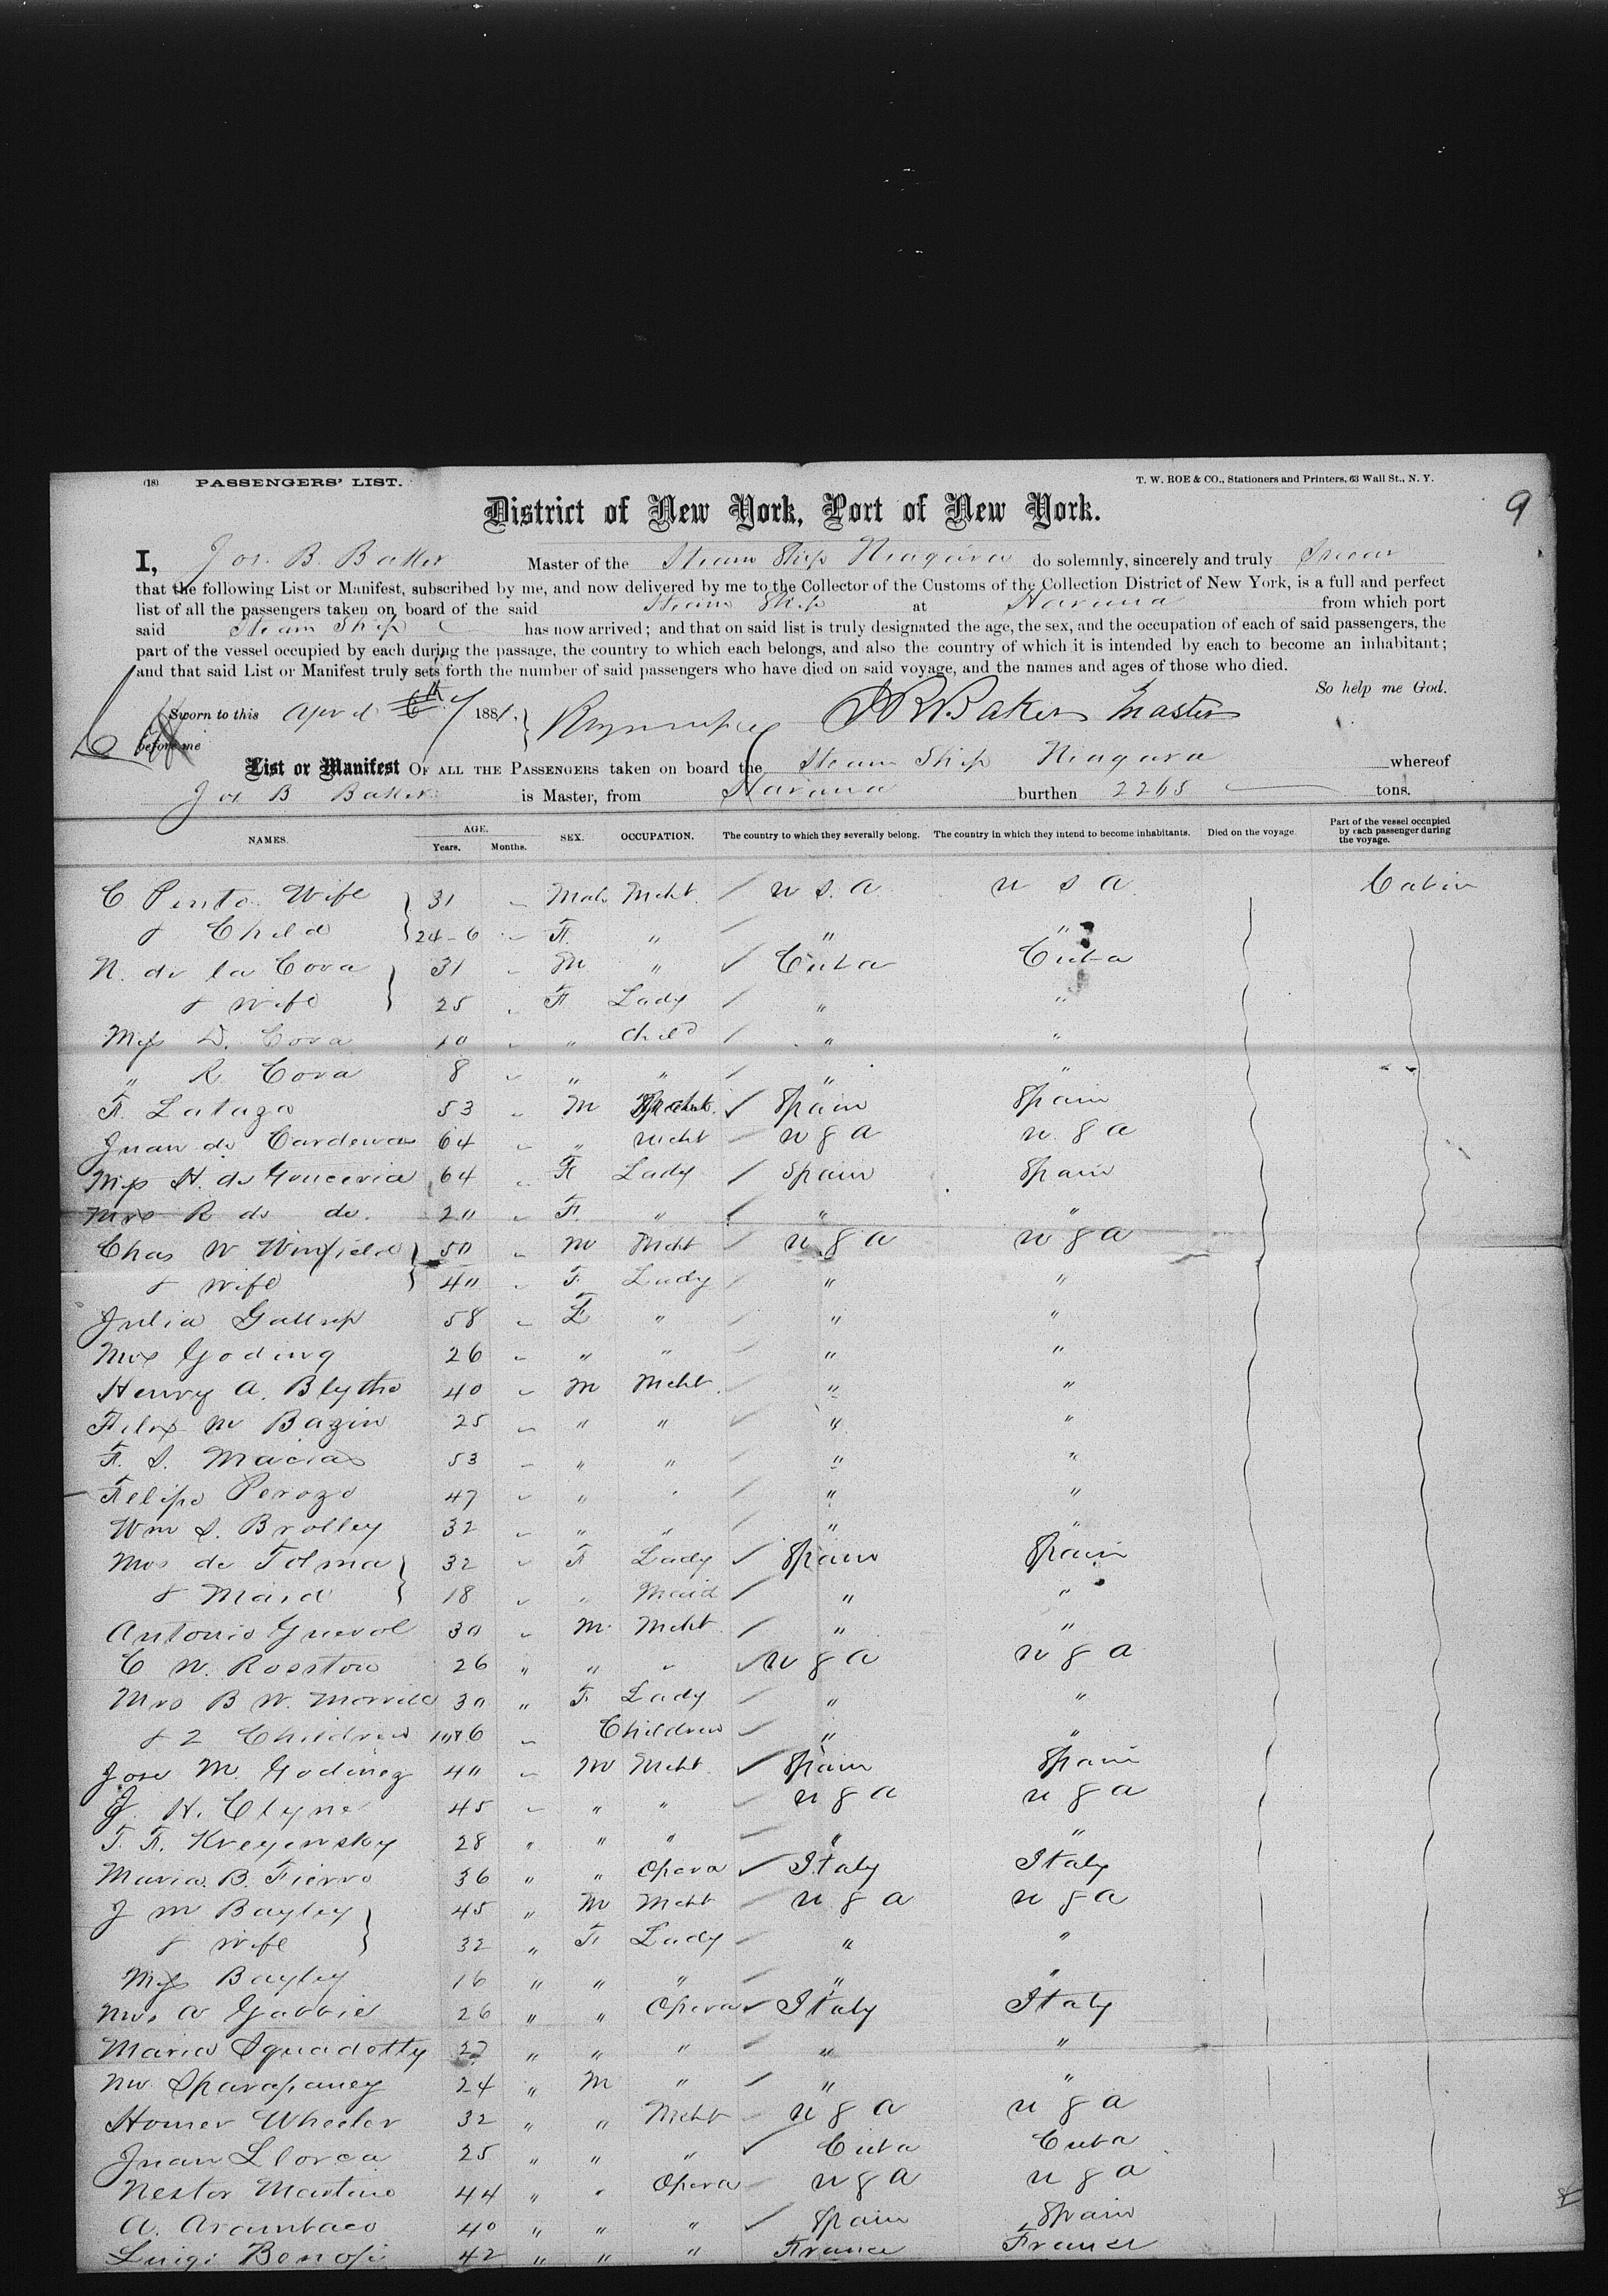 (18) PASSENGERS' LIST. T. W. ROE & CO., Stationers and Printers, 63 Wall St., N. Y.
9
District of New York, Port of New York.
I, Jos. B. Baker Master of the Steam Ship Niagara do solemnly, sincerely and truly Swear
that the following List or Manifest, subscribed by me, and now delivered by me to the Collector of the Customs of the Collection District of New York, is a full and perfect
list of all the passengers taken on board of the said Steam Ship at Havana from which port
said Steam Ship has now arrived; and that on said list is truly designated the age, the sex, and the occupation of each of said passengers, the
part of the vessel occupied by each during the passage, the country to which each belongs, and also the country of which it is intended by each to become an inhabitant;
and that said List or Manifest truly sets forth the number of said passengers who have died on said voyage, and the names and ages of those who died.
So help me God.
Sworn to this April 7 1881. Baker Master
before me
List or Manifest OF ALL THE PASSENGERS taken on board the Steam Ship Niagara whereof
Jos B Baker is Master, from Havana burthen 2265 tons.
NAMES. AGE. Years. Months. SEX. OCCUPATION. The country to which they severally belong. The country in which they intend to become inhabitants. Died on the voyage. Part of the vessel occupied by each passenger during the voyage.
C. Pinto Wife 31 Male Mcht. U S. A U S A Cabin
& Child 24-6 F. " " "
N. de la Cova 31 M " Cuba Cuba
& Wife 25 F Lady " "
Miss D. Cova 10 " Child " "
" R. Cova 8 " " " "
F. 53 M Spain Spain
Juan de Cardenas 64 " Mcht U S A U. S A
H. de 64 F Lady Spain Spain
Mrs R do do. 20 F. " " "
Chas W Winfield 50 M Mcht U S A U S A
& Wife 40 F. Lady " "
Julia Gallup 58 F " " "
Goding 26 " " " "
Henry A. Blythe 40 M Mcht. " "
Felix M Bazin 25 " " " "
F. S. Macias 53 " " " "
Felipe Perozo 47 " " " "
Wm S. Brolley 32 " " " "
Mrs de Tolma 32 F Lady Spain Spain
& Maid 18 " Maid " "
Antonio 30 M. Mcht. " "
C W. 26 " " " U S A U S A
Mrs B W. Morrill 30 " F Lady " "
& 2 Children 10&6 Children " "
Jose M. Godinez 40 M Mcht. Spain Spain
J. H. Clyne 45 " " U S A U S A
T. F. 28 " " " " "
Maria B. Fierro 36 " " Opera Italy Italy
J M Bayley 45 " M Mcht U S A U S A
& Wife 32 " F Lady " "
Miss Bayley 16 " " " " "
26 " " Opera Italy Italy
Maria Squadotty 27 " " " " "
24 " M " " "
Homer Wheeler 32 " " Mcht U S A U S A
Juan Llorca 25 " " " Cuba Cuba
Nestor 44 " " Opera U S A U S A
A. 40 " " " Spain Spain
Luigi 42 " " " France France